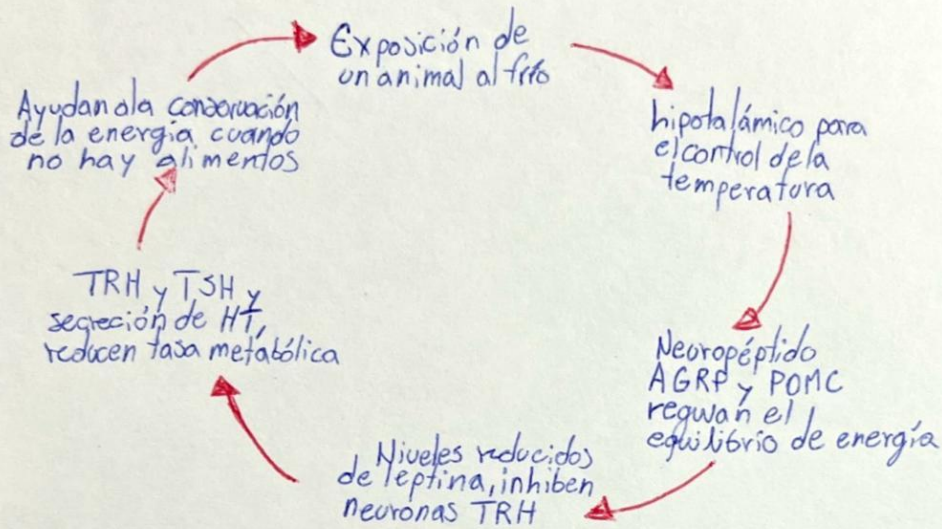 Exposición de
un animal al frío
hipotalámico para
el control de la
temperatura
Neuropéptido
AGRP y POMC
reguan el
equilibrio de energía
Niveles reducidos
de leptina, inhiben
neuronas TRH
TRH y TSH y
segreción de HT,
reducen tasa metabólica
Ayudan ala conservación
de la energía cuando
no hay alimentos